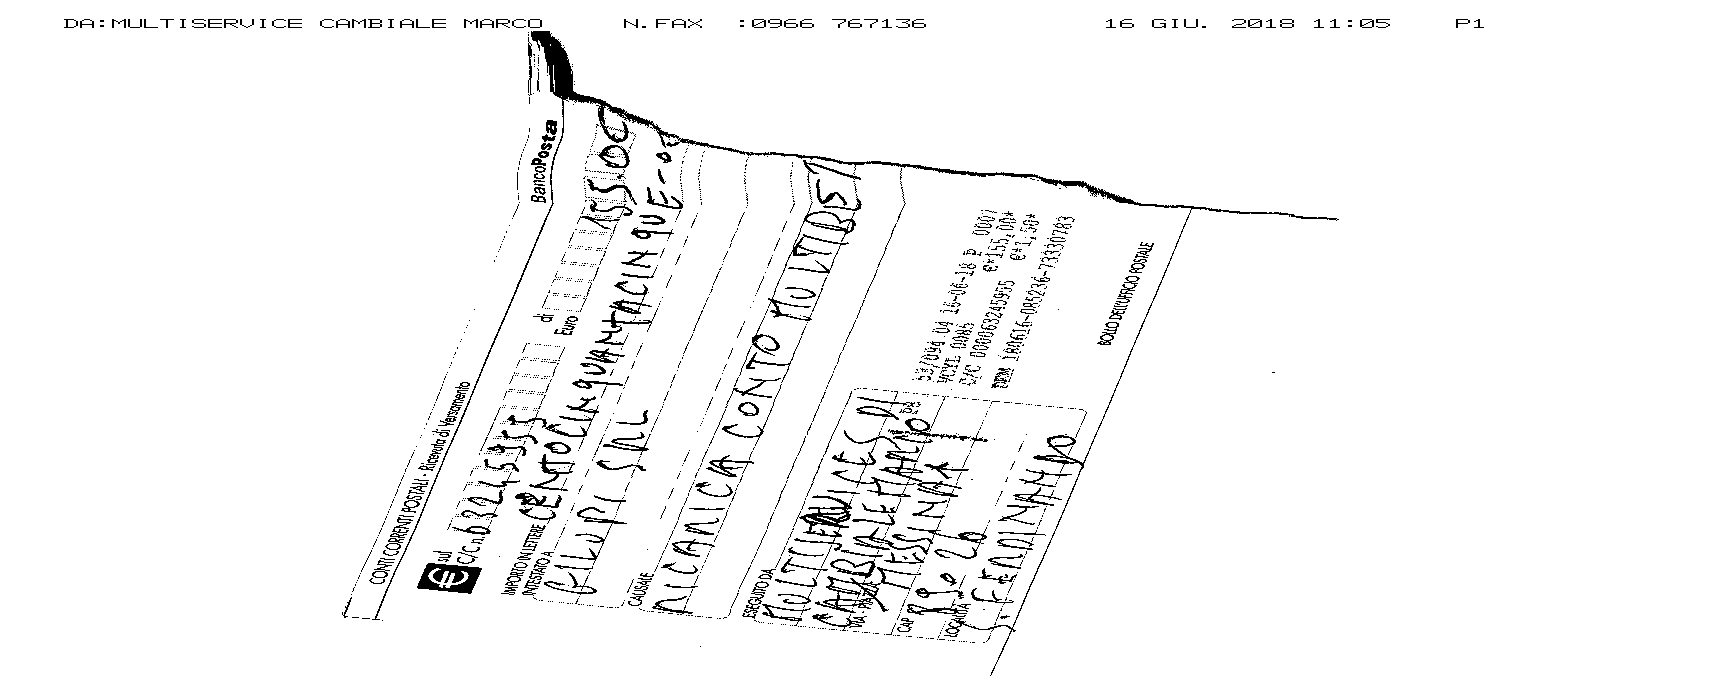 DA:MULTISERVICE CAMBIALE MARCO N.FAX :0966 767136 16 GIU. 2018 11:05 P1
CONTI CORRENTI POSTALI - Ricevuta di Versamento
BancoPosta
sul C/C n. 63245955 di Euro 155,00
IMPORTO IN LETTERE CENTOCINQUANTACINQUE
INTESTATO A
GILUPI SRL
CAUSALE
RICARICA CONTO MULTIBS
ESEGUITO DA
MULTISERVICES DI
CAMBIALE MARIO
VIA - PIAZZA MESSINA
CAP 89026
LOCALITÀ
S. FERDINANDO
53/094 04 16-06-18 P
VCYL 0086 €*155,00*
C/C 000063245955 €*1,50*
BOLLO DELL'UFFICIO POSTALE